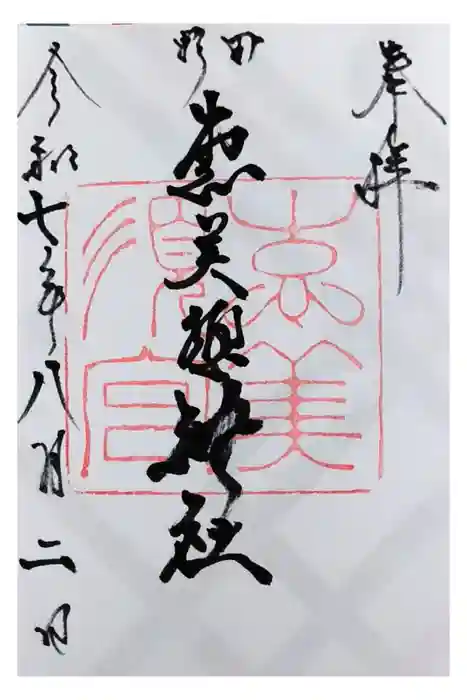 奉拝
恵美須神社
令和七年八月二日
恵美
須宮